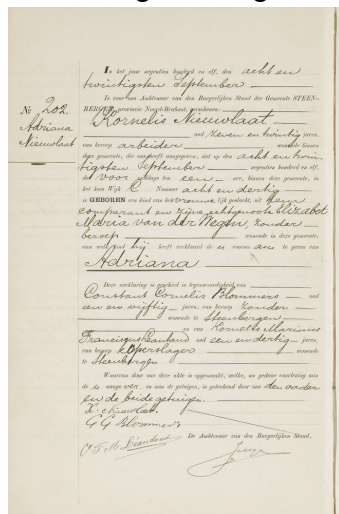 In het jaar negentien honderd en elf, den acht en
twintigsten September
is voor ons Ambtenaar van den Burgerlijken Stand der Gemeente STEEN-
BERGEN, provincie Noord-Brabant, verschenen:
Kornelis Nieuwlaat
oud zeven en twintig jaren,
van beroep arbeider wonende binnen
deze gemeente, die ons heeft aangegeven, dat op den acht en twin-
tigsten September negentien honderd en elf,
des voor middags ten een ure, binnen deze gemeente, in
het huis Wijk C Nummer acht en dertig
is GEBOREN een kind van het vrouwelijk geslacht, uit hem
comparant en zijne echtgenoote Elizabet
Maria van der Wegen, zonder
beroep wonende in deze gemeente,
aan welk kind hij heeft verklaard de voornaam te geven van
Adriana
Deze verklaring is geschied in tegenwoordigheid van
Constant Cornelis Blommers oud
een en vijftig jaren, van beroep zonder
wonende te Steenbergen
en van Kornelis Marinus
Franciscus oud een en dertig jaren,
van beroep koperslager wonende
te Steenbergen
Waarvan door ons deze akte is opgemaakt, welke, na gedane voorlezing aan
de comparant en aan de getuigen, is geteekend door ons den vader
en de beide getuigen.
K. Nieuwlaat
Blommers
De Ambtenaar van den Burgerlijken Stand,
№ 202.
Adriana
Nieuwlaat